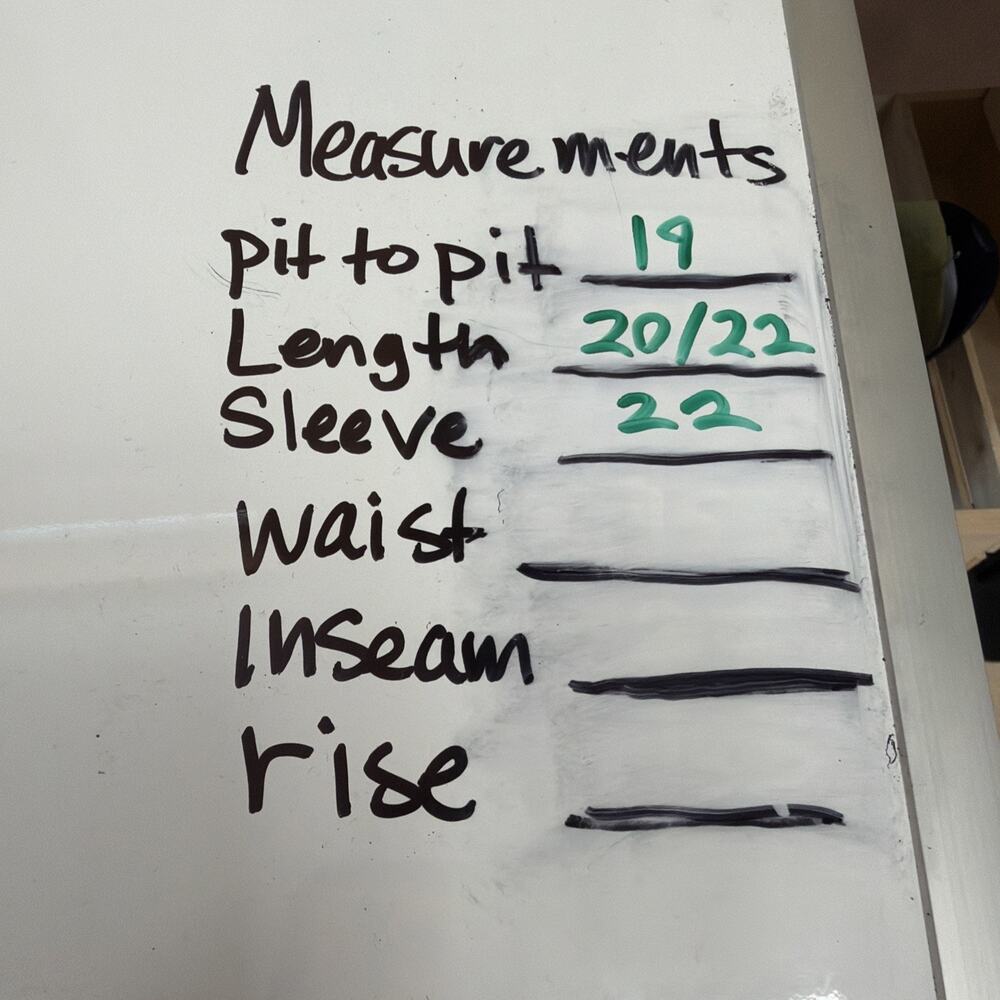 Measurements
pit to pit 19
Length 20/22
Sleeve 22
waist
Inseam
rise